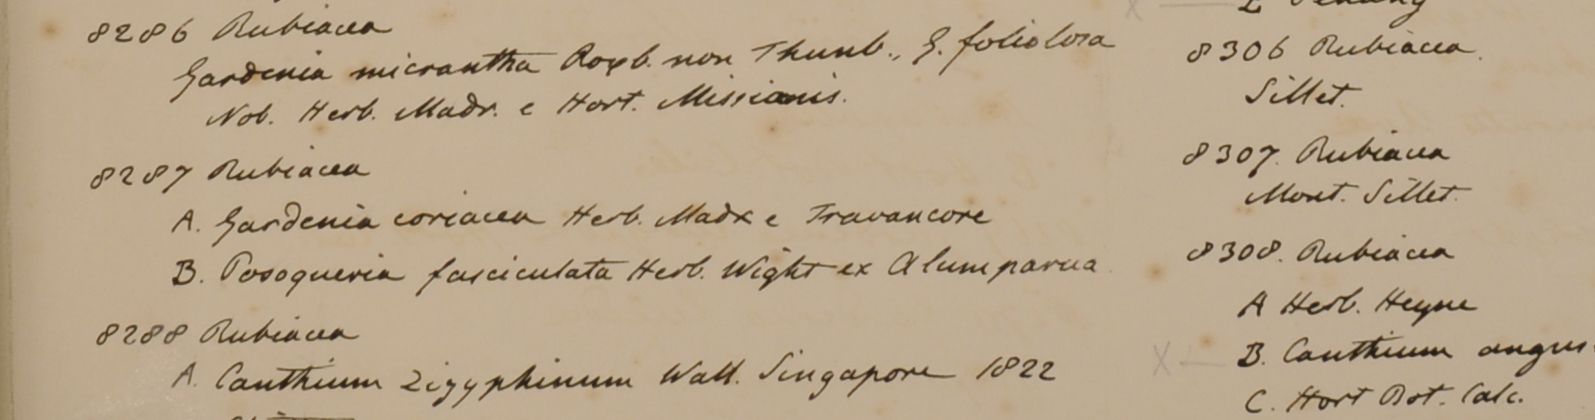 8286 Rubiacea
Gardenia micrantha Roxb. non Thunb., G. foliolosa
Nob. Herb. Madr. e Hort. Missionis.
8287 Rubiacea
A. Gardenia coriacea Herb. Madr e Travancore
B. Posoqueria fasciculata Herb. Wight ex Alumparva
8288 Rubiacea
A. Canthium Zizyphinum Wall. Singapore 1822
8306 Rubiacea.
Sillet.
8307. Rubiacea
Mont. Sillet.
8308. Rubiacea
A Herb. Heyne
B. Canthium angus
C. Hort Bot. Calc.